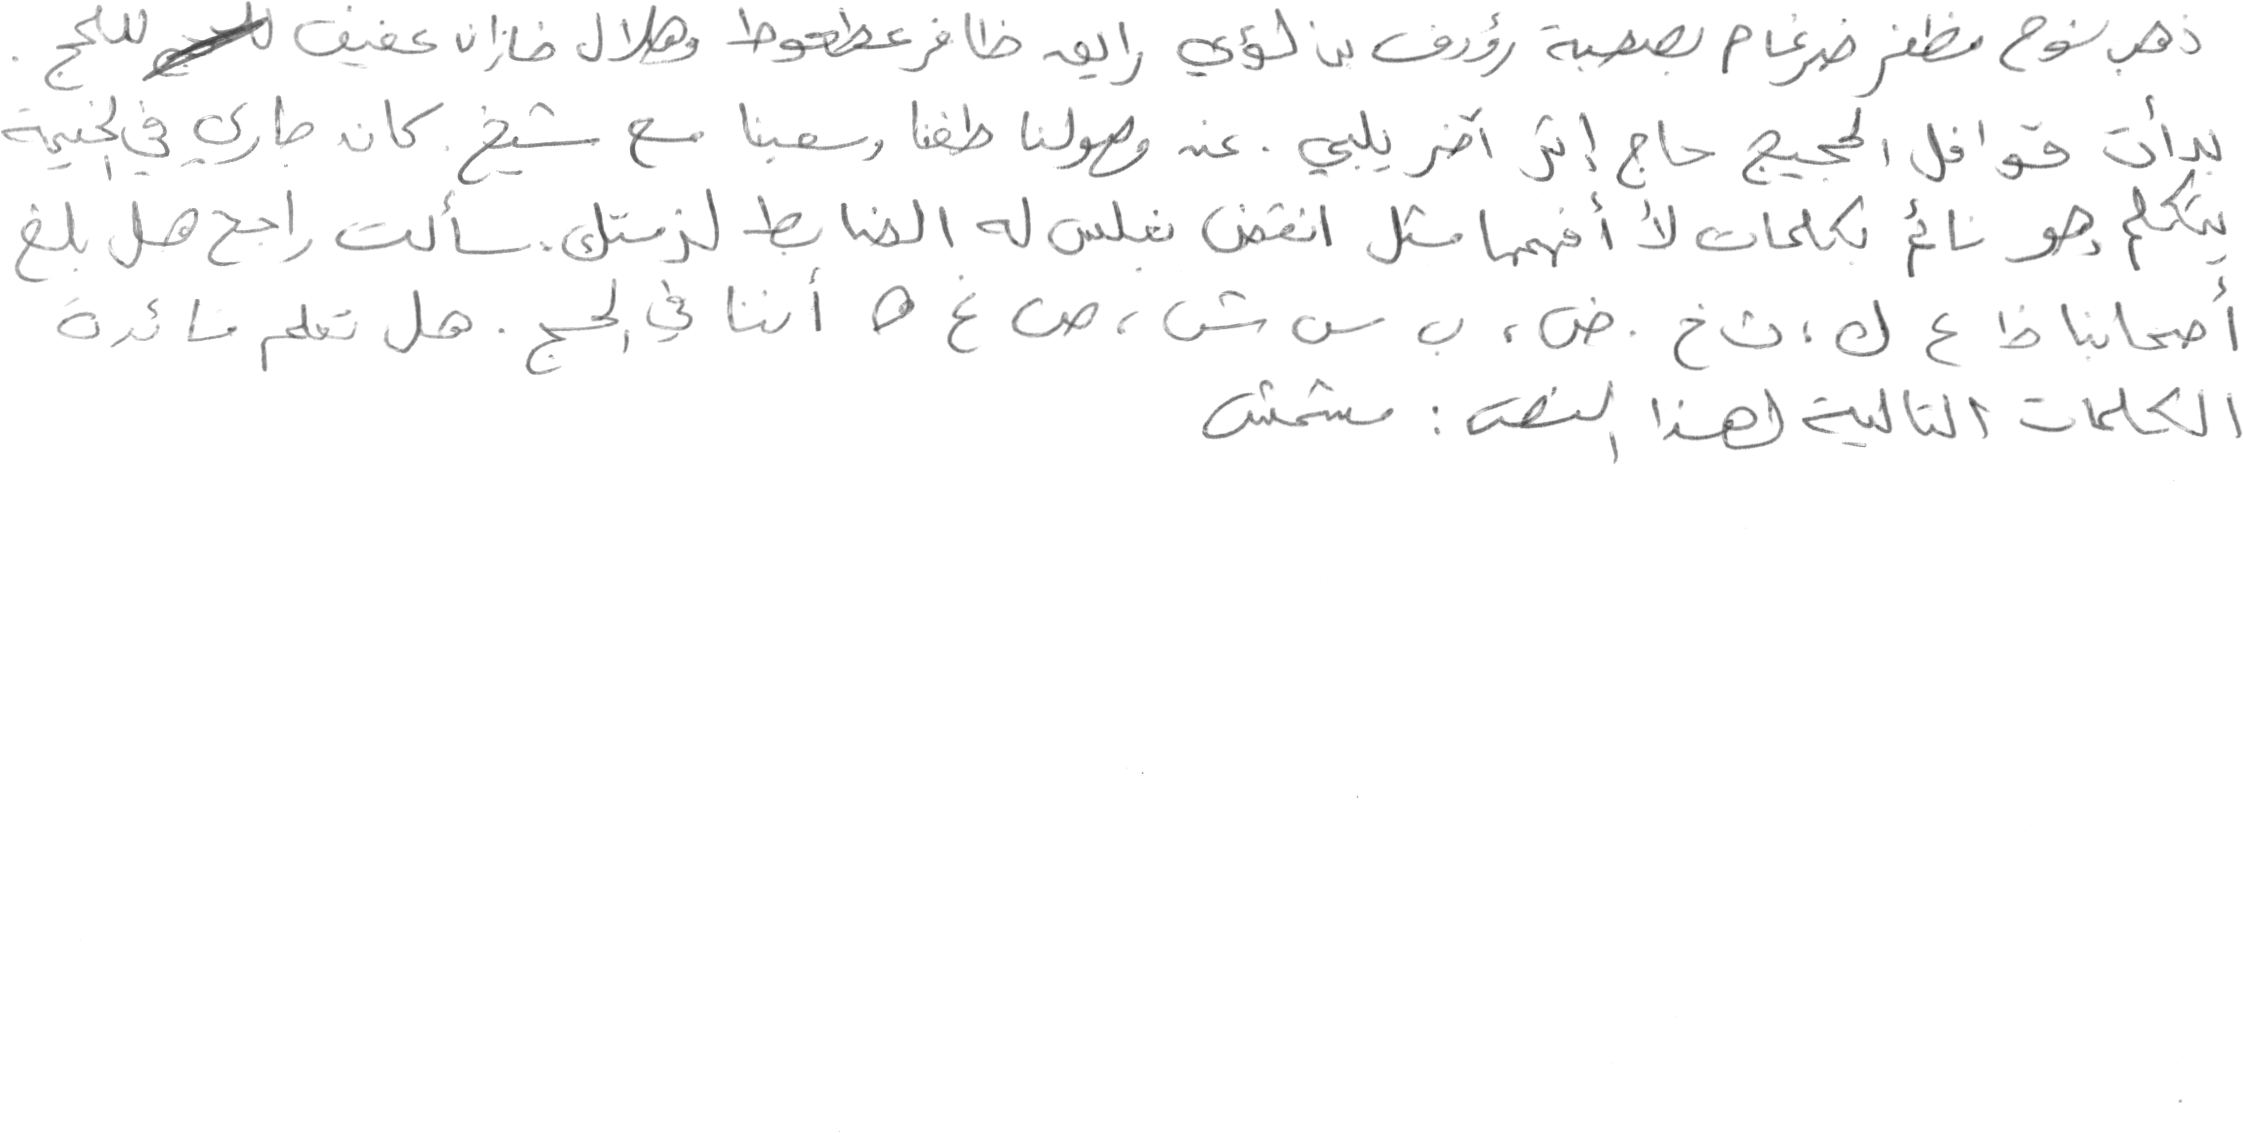 ذهب نوح مظفر ضرغام بصحبة رؤوف بن لؤي رايق ظافر عطعوط وهلال خازن عفيف للحج .
بدأت قوافل الحجيج حاج إثر آخر يلبي . عند وصولنا طفنا وسعينا مع شيخ . كان طاري في الخيمة
يتكلم وهو نائم بكلمات لا أفهمها مثل انقض نغلس له الضابط لزمتك . سألت راجح هل بلغ
أصحابنا ظ ع ك ، ث خ . ض ، ب س ش ، ص غ ه أننا في الحج . هل تعلم فائدة
الكلمات التالية لهذا النص : مشمش